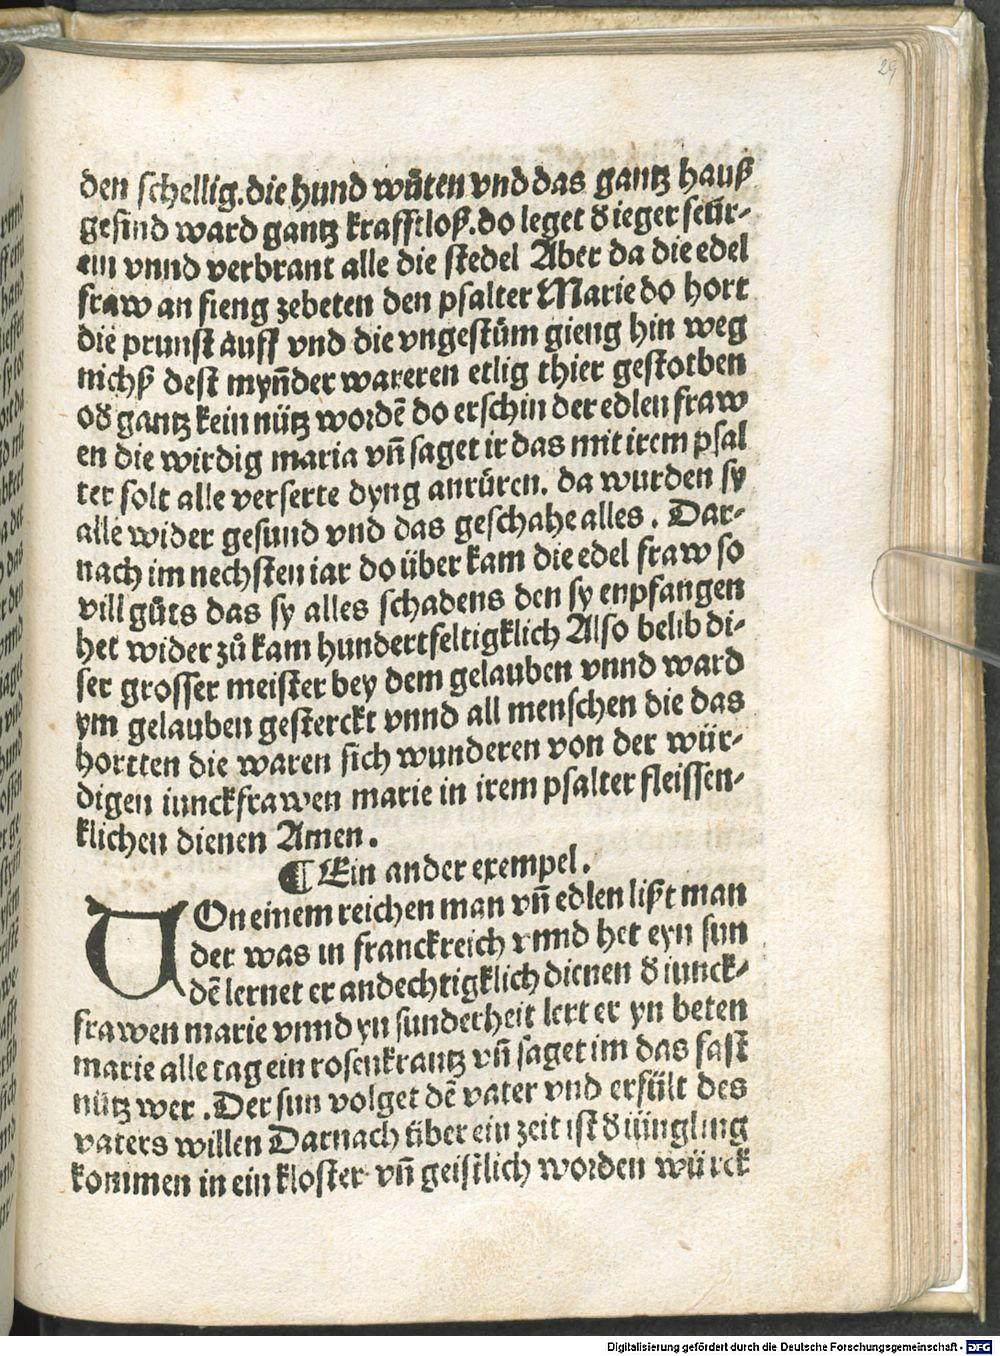 29
den schellig.die hund wůten vnd das gantz hauß
gesind ward gantz krafftloß.do leget d̕ ieger feür-
ein vnnd verbrant alle die stedel Aber da die edel
fraw an fieng zebeten den psalter Marie do hort
die prunst auff vnd die vngestüm gieng hin weg
nichß dest mynn̄der wareren etlig thier gestorben
od̕ gantz kein nütz wordē do erschin der edlen fraw
en die wirdig maria vn̄ saget ir das mit irem psal
ter solt alle verserte dyng anrüren. da wurden sy
alle wider gesund vnd das geschahe alles. Dar-
nach im nechsten iar do über kam die edel fraw so
vill gůts das sy alles schadens den sy enpfangen
het wider zů kam hundertfeltigklich Also belib di-
ser grosser meister bey dem gelauben vnnd ward
ym gelauben gesterckt vnnd all menschen die das
hortten die waren sich wunderen von der wür-
digen iunckfrawen marie in irem psalter fleissen-
klichen dienen Amen.
¶ Ein ander exempel.
VOn einem reichen man vn̄ edlen lißt man
der was in franckreich vnnd het eyn sun
dē lernet er andechtigklich dienen d̕ iunck-
frawen marie vnnd yn sunderheit lert er yn beten
marie alle tag ein rosenkrantz vn̄ saget im das fast
nütz wer. Der sun volget dē vater vnd erfült des
vaters willen Darnach über ein zeit ist d̕ iüngling
kommen in ein kloster vn̄ geistlich worden würck
Digitalisierung gefördert durch die Deutsche Forschungsgemeinschaft - DFG